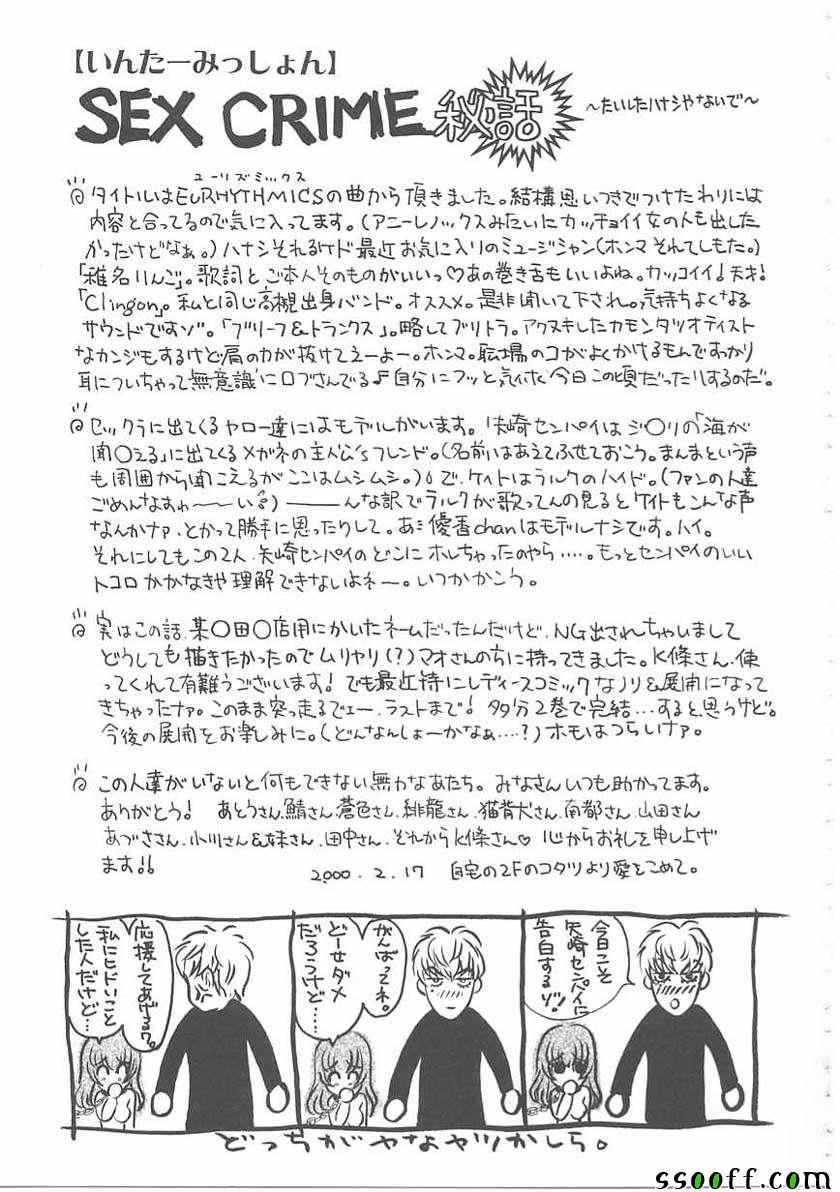 【いんたーみっしょん】
SEX CRIME 秘話 〜たいしたハナシやないで〜
ユーリズミックス
タイトルはEURHYTHMICSの曲から頂きました。結構思いつきでつけたわりには
内容と合ってるので気に入ってます。(アニーレノックスみたいにカッチョイイ女の人も出した
かったけどなぁ。)ハナシそれるケド最近お気に入りのミュージシャン(ホンマそれてしもた。)
「椎名りんご」。歌詞とご本人そのものがいいっ♡あの巻き舌もいいよね。カッコイイ!天才!
「Clingon」。私と同じ高槻出身バンド。オススメ。是非聞いて下され。気持ちよくなる
サウンドですゾ。「ブリーフ&トランクス」。略してブリトラ。アクヌキしたカモンタツオテイスト
なカンジもするけど肩の力が抜けてえーよー。ホンマ。職場のコがよくかけるもんですっかり
耳についちゃって無意識に口ずさんでる♪自分にフッと気付く今日この頃だったりするのだ。
セックラに出てくるヤロー達にはモデルがいます。矢崎センパイはジ○リの「海が
聞○える」に出てくるメガネの主人公'sフレンド。(名前はあえてふせておこう。まんまという声
も周囲から聞こえるがここはムシムシ。)で、ケイトはラルクのハイド。(ファンの人達
ごめんなすゎ〜〜い)―――んな訳でラルクが歌ってんの見るとケイトもこんな声
なんかナァ、とかって勝手に思ったりして。あ、優香chanはモデルナシです。ハイ。
それにしてもこの2人、矢崎センパイのどこにホレちゃったのやら‥‥。もっとセンパイのいい
トコロかかなきゃ理解できないよネー。いつかかこう。
実はこの話、某○田○店用にかいたネームだったんだけど、NG出されちゃいまして
どうしても描きたかったのでムリヤリ(?)マオさんのちに持ってきました。K條さん、使
ってくれて有難うございます!でも最近特にレディースコミックなノリ&展開になって
きちゃったナァ。このまま突っ走るでェー、ラストまで!多分2巻で完結…すると思うけど。
今後の展開をお楽しみに。(どんなんしょーかなぁ…?)ホモはつらいナァ。
この人達がいないと何もできない無力なあたち。みなさんいつも助かってます。
ありがとう! あとうさん、鯖さん、蒼色さん、緋龍さん、猫背犬さん、南都さん、山田さん
あづささん、小川さん&妹さん、田中さん、それからK條さん♡ 心からお礼を申し上げ
ます!!
2000.2.17 自宅の2Fのコタツより愛をこめて。
今日こそ
矢崎センパイに
告白するゾ!
がんばってネ。
どーせダメ
だろうけど…
応援してあげるワ。
私にヒドいこと
した人だけど…
どっちがヤなヤツかしら。
ssooff.com